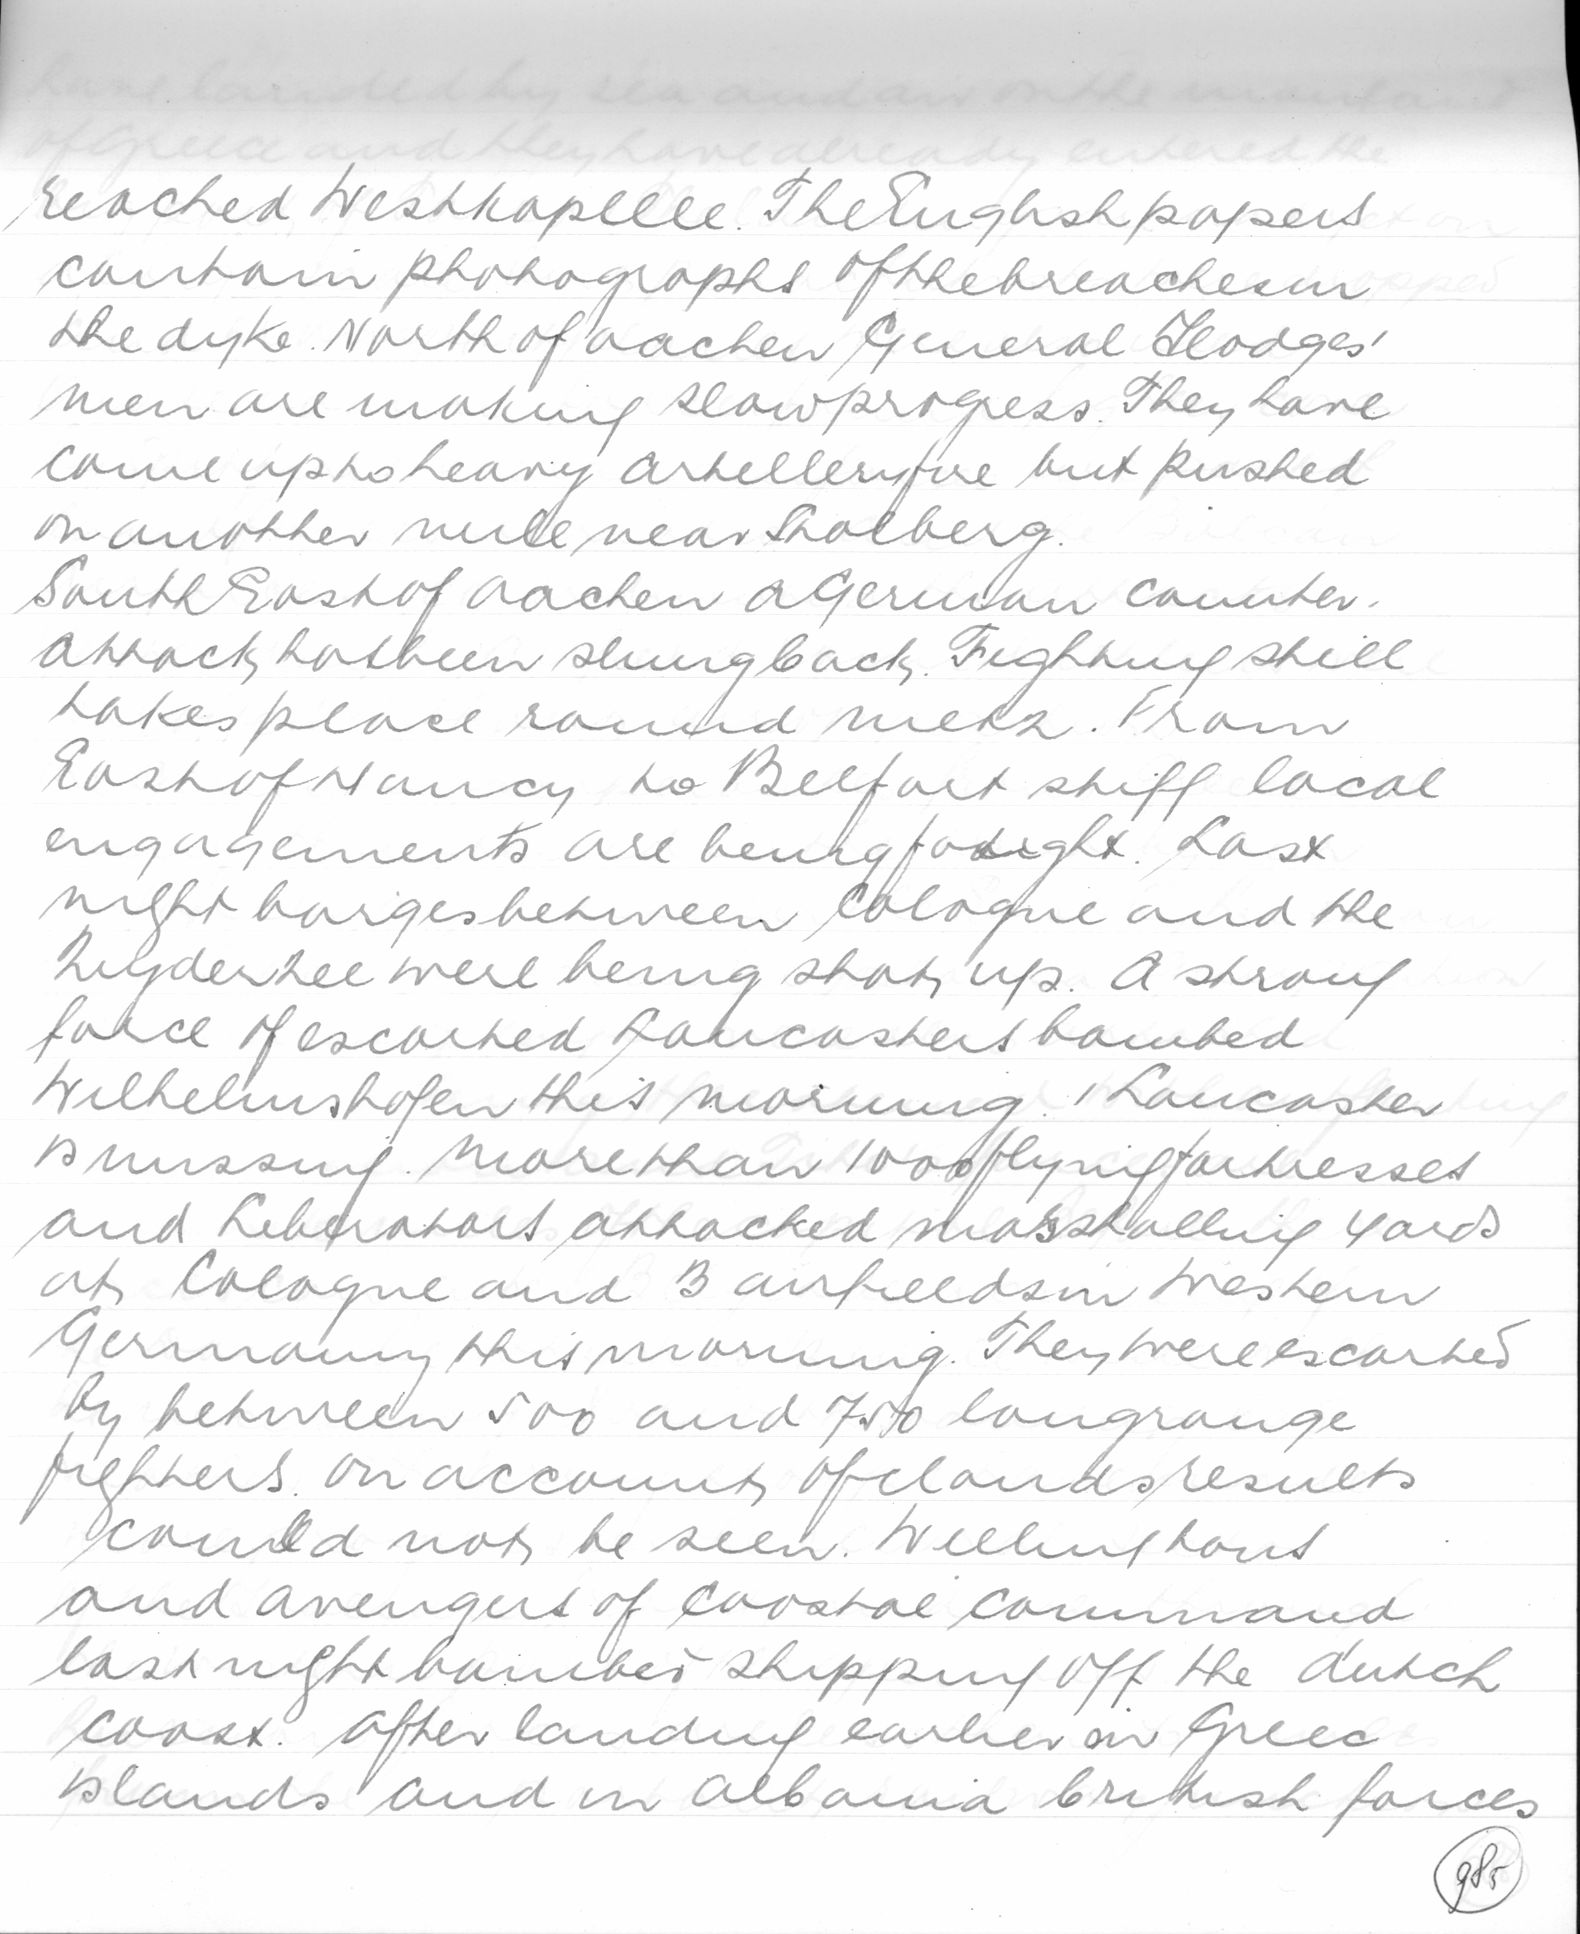 have landed by sea and air on the mainland
of Greece and they have already entered the
reached Westkapelle. The English papers
contain photographs of the breaches in
the dyke. North of Aachen General Hodges'
men are making slow progress. They have
come up to heavy artillery fire but pushed
on another mile near Stolberg.
South East of Aachen a German counter-
attack has been slung back. Fighting still
takes place round Metz. From
East of Nancy to Belfort stiff local
engagements are being fought. Last
night barges between Cologne and the
Zuyderzee were being shot up. A strong
force of escorted Lancasters bombed
Wilhelmshafen this morning. 1 Lancaster
is missing. More than 1000 flying fortresses
and Liberators attacked marshalling yards
at Cologne and 3 airfields in Western
Germany this morning. They were escorted
by between 500 and 750 longrange
fighters. On account of clouds results
could not be seen. Wellingtons
and Avengers of Coastal Command
last night bombed shipping off the dutch
coast. After landing earlier in Greec
islands and in Albania british forces
985